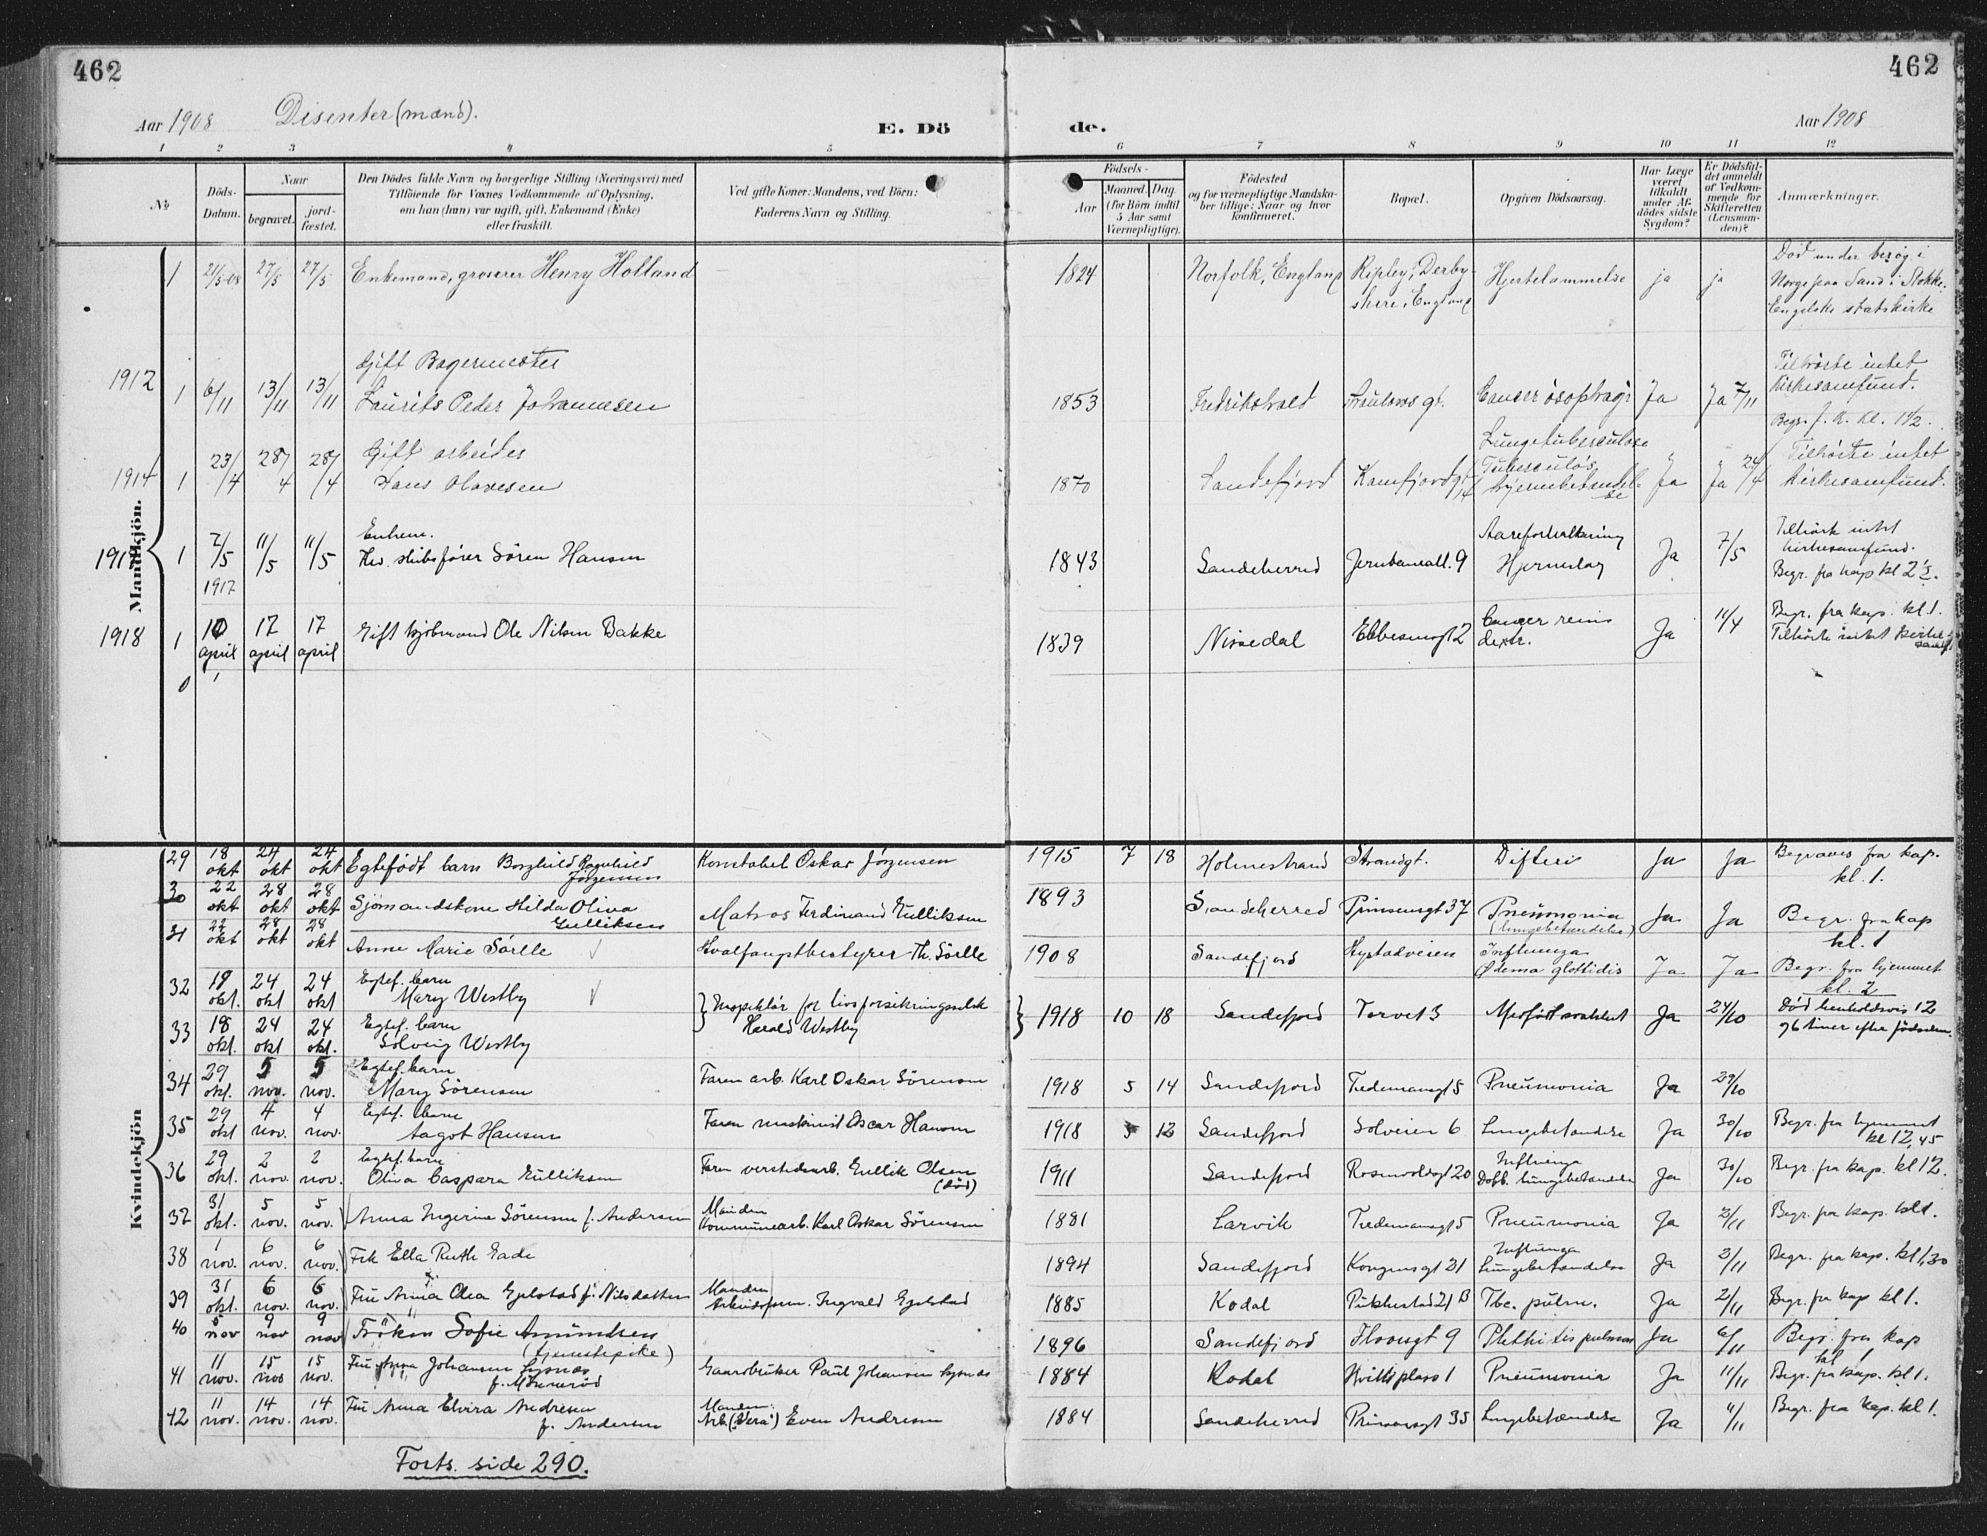 462
462
Aar 1908 Disenter (mænd).
E. Dö
de.
Aar 1908
1 2 3 4 5 6 7 8 9 10 11 12
No
Döds-Datum.
Naar
begravet.
jord-fæstet.
Den Dödes fulde Navn og borgerlige Stilling (Næringsvei) med
Tilföiende for Voxnes Vedkommende af Oplysning,
om han (hun) var ugift, gift, Enkemand (Enke)
eller fraskilt.
Ved gifte Koner: Mandens, ved Börn:
Faderens Navn og Stilling.
Födsels-
Aar
Maaned. Dag.
(for Börn indtil
5 Aar samt
Værnepligtige).
Födested
og for værnepligtige Mandska-
ber tillige: Naar og hvor
konfirmeret.
Bopæl.
Opgiven Dödsaarsag.
Har Læge
været
tilkaldt
under Af-
dödes sidste
Sygdom?
Er Dödsfal-
det anmeldt
af Vedkom-
mende for
Skifteretten
(Lensman-
den)?
Anmærkninger.
Mandkjön.
1 21/5-08 27/5 27/5 Enkemand, grosserer Henry Holland 1824 Norfolk, England Ripley, Derby- Hjertelammelse ja ja Död under besøg i
shire, England Norge paa Sand i Stokke.
Engelske statskirke
1912 Gift Bagermester Tilhörte intet
1 6/11 13/11 13/11 Laurits Peder Johannesen 1853 Fredrikshald Cancer øsophagi Ja Ja 7/11 Kirkesamfund.
Begr. f. k. kl. 1 1/2.
1914 Gift arbeider Lungetuberculose Tilhörte intet
1 23/4 28/4 28/4 Hans Olavesen 1870 Sandefjord Kamfjordgt Tuberculös Ja Ja 24/4 Kirkesamfund.
hjernebetendel-
se
Enkem. Aareforkalkning Tilhörte intet
1 7/5 11/5 11/5 Hv. skibsfører Søren Hansen 1843 Sandeherred Jernbaneall. 9 Hjerneslag Ja 7/5 kirkesamfund.
1917 Begr. fra kap kl 2 1/2.
1918 1 10 april 17 april 17 april Gift kjøbmand Ole Nilsen Bakke 1839 Nissedal Ebbesensgt 2 Cancer renis Ja 11/4 Begr. fra kap. kl 1.
dextr. Tilhörte intet kirke-
samf.
0
Kvindekjön
29 18 okt 24 okt 24 okt Egtefödt barn Borghild Ragnhild Konstabel Oskar Jørgensen 1915 7 18 Holmestrand Strandgt. Difteri Ja Ja Begraves fra kap.
Jörgensen kl. 1.
30 22 okt 28 okt 28 okt Sjømandskone Hilda Oliva Matros Ferdinand Gulliksen 1893 Sandeherred Prinsensgt 37 Pneumonia Ja Ja Begr. fra kap
Gulliksen (lungebetændelse) kl. 1
31 22 okt 28 okt 28 okt Anne Marie Sørlle Hvalfangstbestyrer Th. Sørlle 1908 Sandefjord Hystadveien Influenza
Ødema glottidis Ja Ja Begr. fra hjemmet
kl. 2
32 18 okt. 24 okt 24 okt Egtef. barn
Mary Westby Inspektör for livsforsikringsselsk
Harald Westby 1918 10 18 Sandefjord Torvet 3 Ja 24/10 Död henholdsvis 12
og 6 timer efter födselen.
33 18 okt. 24 okt 24 okt. Egtef. barn
Solveig Westby
34 29 okt. 5 nov. 5 nov. Egtef. barn
Mary Sørensen Faren arb. Karl Oskar Sörensen 1918 5 14 Sandefjord Tredemansgt 5 Pneumonia Ja 29/10
35 29 okt 4 nov. 4 nov. Egtef. barn
Aagot Hansen Faren maskinist Oscar Hansen 1918 5 12 Sandefjord Solveien 6 Lungebetændelse Ja 30/10 Begr. fra hjemmet
kl 12,45
36 29 okt. 2 nov. 2 nov. Egtef. barn
Oliva Caspara Gulliksen Faren verkstedsarb. Gullik Olsen
(död) 1911 Sandefjord Rosenvoldsgt 20 Influenza
Dobb. lungebetændelse Ja 30/10 Begr. fra kap. kl 12.
37 31 okt. 5 nov. 5 nov. Anna Ingerine Sörensen f. Andersen Manden
Kommunearb. Karl Oskar Sörensen 1881 Larvik Tredemansgt 5 Pneumonia Ja 2/11 Begr. fra kap. kl 1.
38 1 nov. 6 nov. 6 nov. Frk Ella Ruth Gade 1894 Sandefjord Kongensgt 21 Influenza
Lungebetændelse Ja 2/11 Begr. fra kap. kl 1,30
39 31 okt. 6 nov. 6 nov. Fru Anna Olea Gjelstad f. Nilsdatter Manden
Ingvald Gjelstad 1885 Kodal Pukkestad 21 B Tbc. pulm. Ja 2/11 Begr. fra kap kl 1.
40 5 nov 9 nov 9 nov Fröken Sofie Amundsen
(tjenestepike) 1896 Sandefjord Phthisis pulmon Ja 6/11 Begr. fra kap
kl 1
41 11 nov. 15 nov 15 nov. Fru Anna Johansen Lysnæs
Gaardbruker Paul Johansen Lysnæs 1884 Kodal Hvitts plass 1 Pneumonia Ja 11/11 Begr. fra kap. kl 1.
42 11 nov. 14 nov. 14 nov. Fru Anna Elvira Andresen
f. Andersen Manden:
Arb. (Vera) Even Andresen 1884 Sandeherred Prinsensgt 35 Lungebetændelse Ja 11/11 Begr. fra kap. kl 1.
Forts. side 290.